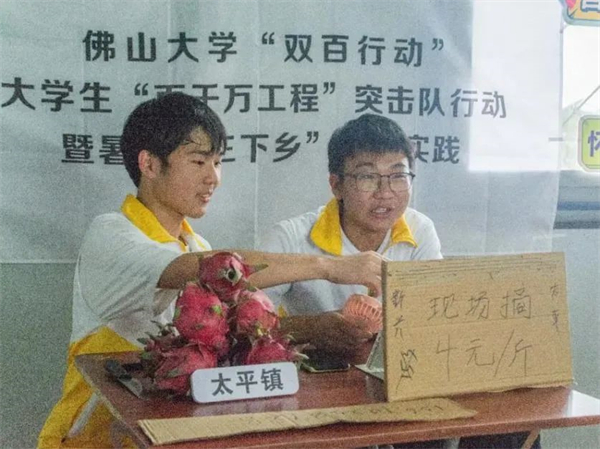 佛山大学“双百行动”
大学生“百千万工程”突击队行动
暨暑 下乡” 实践
现场摘
4元/斤
太平镇
怀